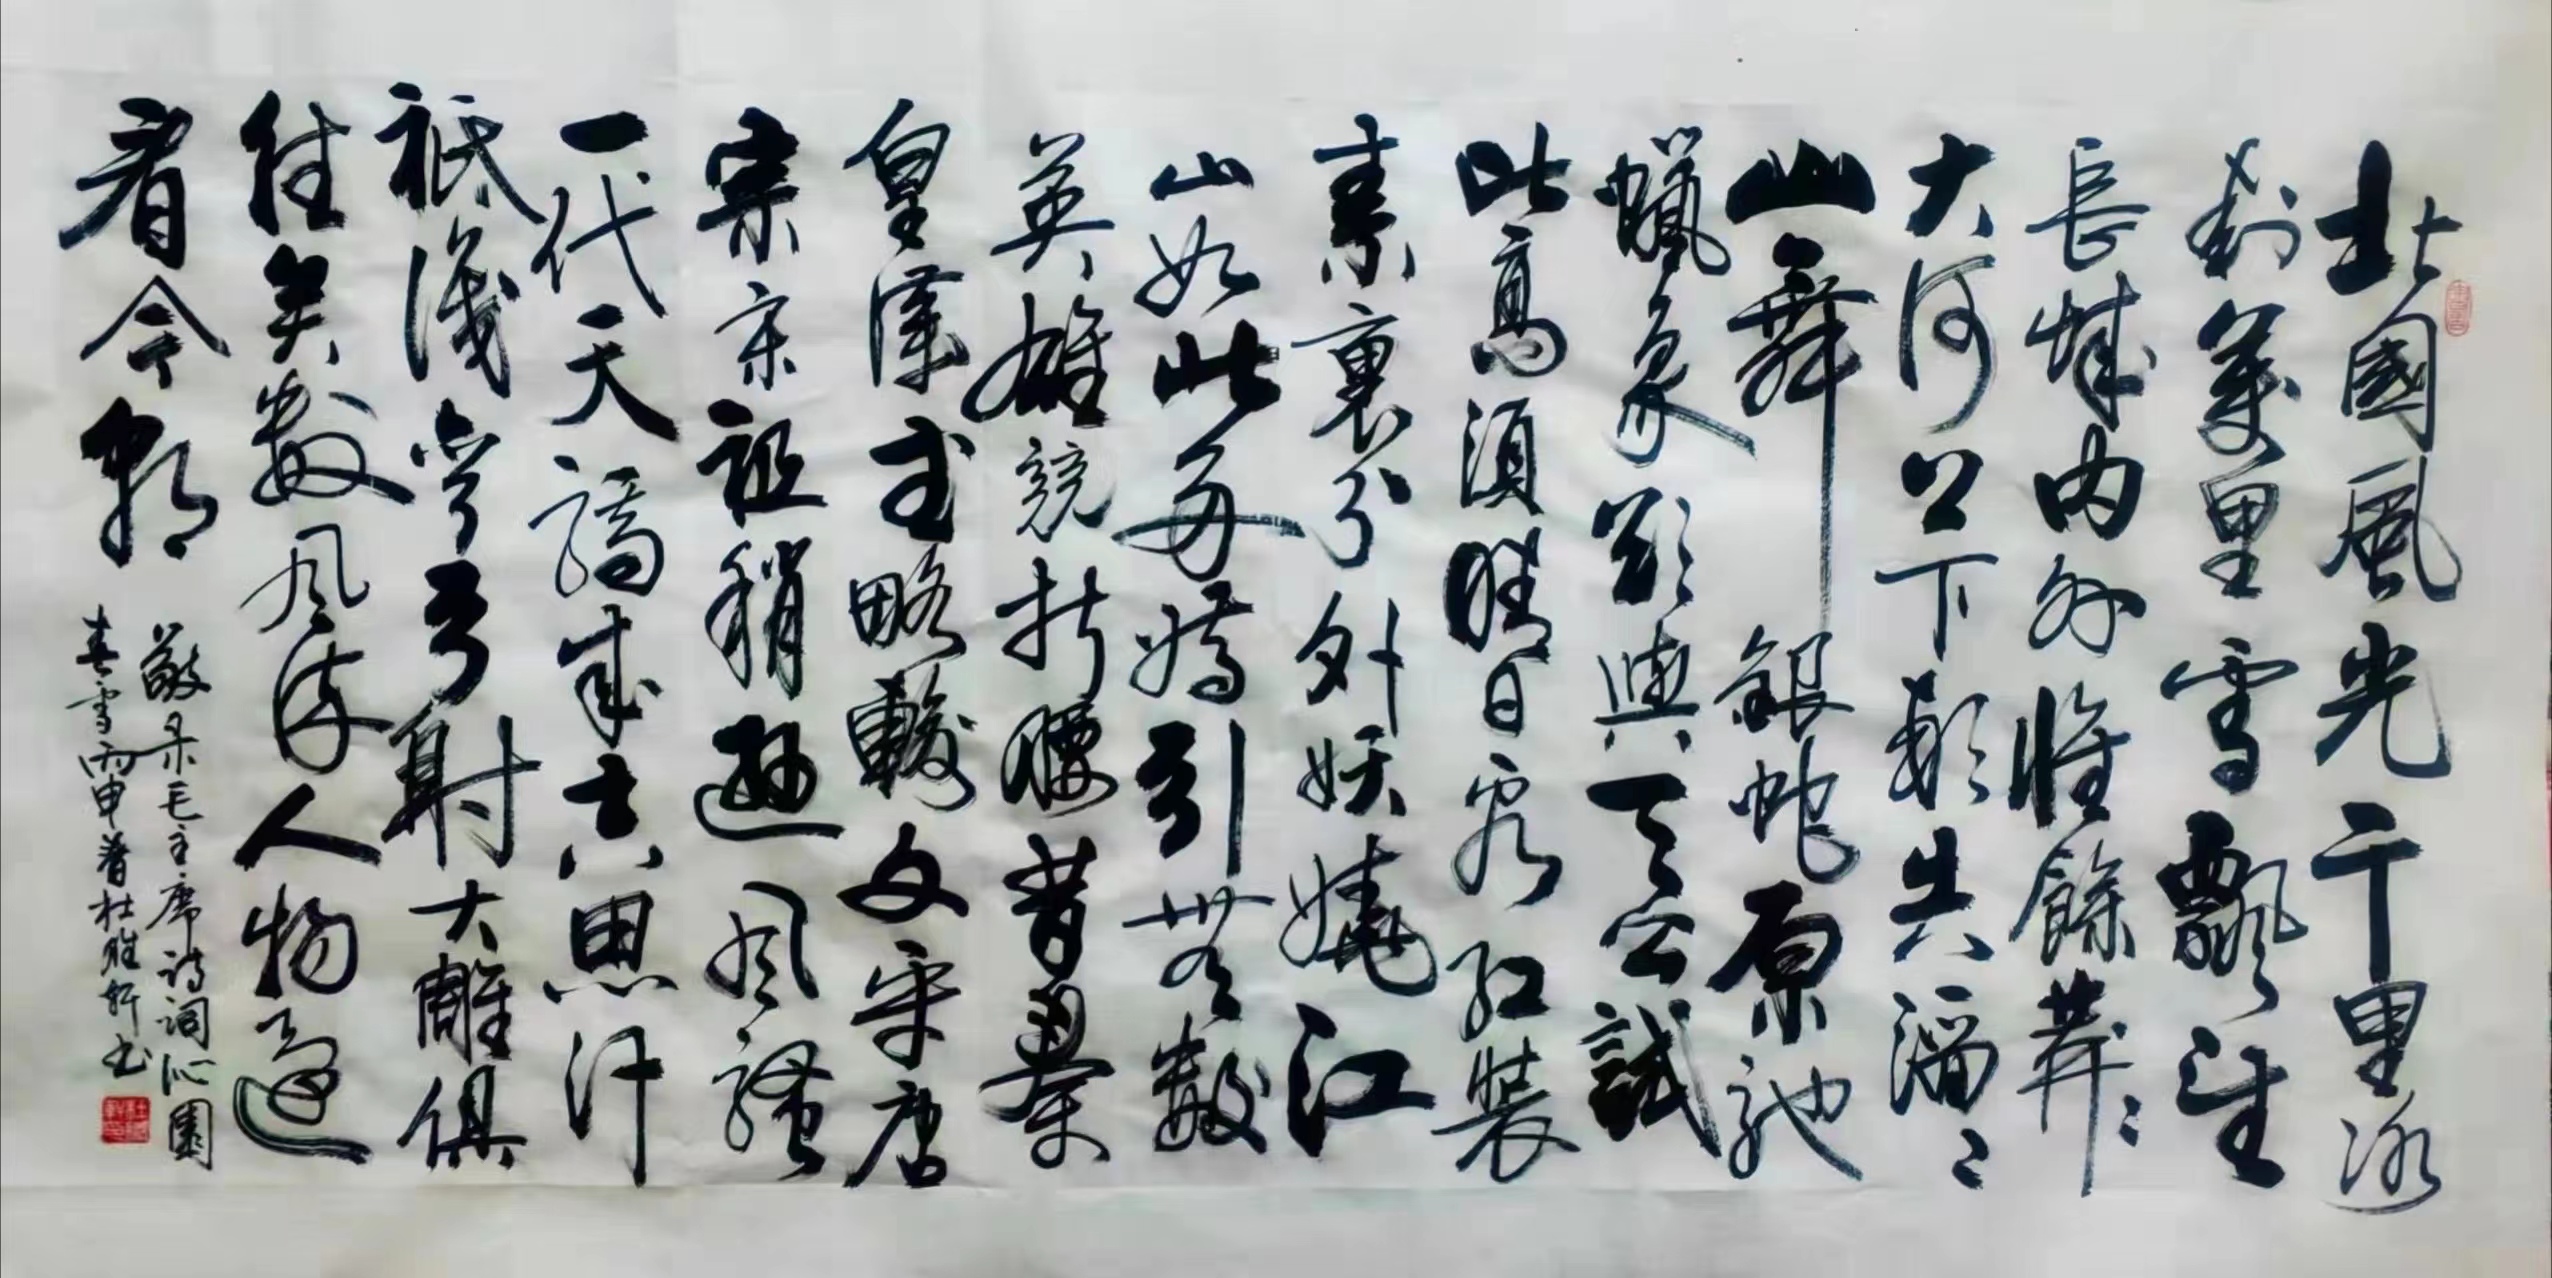 北國風光千里冰
封萬里雪飄望
長城内外惟餘莽々
大河上下頓失滔々
山舞銀蛇原馳
蠟象欲與天公試
比高須晴日看紅裝
素裹分外妖嬈江
山如此多嬌引無數
英雄競折腰昔秦
皇漢武略輸文采唐
宗宋祖稍遜風騷
一代天驕成吉思汗
祇識彎弓射大雕俱
往矣數風流人物還
看今朝
敬录毛主席诗词沁園
春雪丙申春杜胜軒书